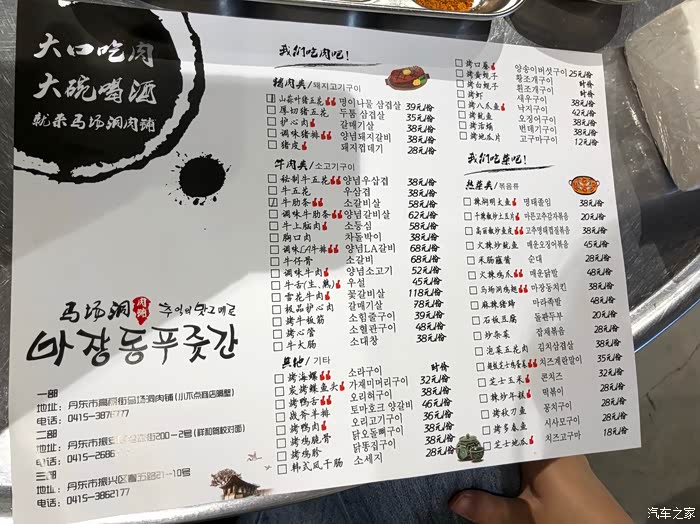 大口吃肉
大碗喝酒
就来马场洞肉铺
马场洞
肉铺
추억의 맛 그대로
마장동푸줏간
一部
地址：丹东市
电话：0415-387
二部
地址：丹东市振
200-2号
电话：0415-2686
三部
地址：丹东市振兴区青五路21-10号
电话：0415-3862177
我们吃肉吧！
猪肉类/돼지고기구이
山蒜叶猪五花 명이나물 삼겹살 39元/份
厚切猪五花 두툼 삼겹살 35元/份
护心肉 갈매기살 38元/份
调味猪排 양념돼지갈비 38元/份
猪皮 돼지껍데기 28元/份
牛肉类/소고기구이
秘制牛五花 양념우삼겹 38元/份
牛五花 우삼겹 38元/份
牛肋条 소갈비살 58元/份
调味牛肋条 양념갈비살 62元/份
牛上脑肉 소등심 58元/份
胸口肉 차돌박이 38元/份
调味LA牛排 양념LA갈비 68元/份
牛仔骨 소갈비 68元/份
调味牛肉 양념소고기 52元/份
牛舌(生、熟) 우설 45元/份
雪花牛肉 꽃갈비살 118元/份
极品护心肉 소갈매기살 78元/份
烤牛板筋 소힘줄구이 39元/份
烤心管 소혈관구이 48元/份
牛大肠 소대창 38元/份
其他/기타
烤海螺 소라구이 时价
炭烤鲽鱼头 가제미머리구이 32元/份
烤鸭舌 오리혀구이 38元/份
战斧羊排 토마호크 양갈비 46元/份
烤鸭肉 오리고기구이 36元/份
烤鸡脆骨 닭오돌뼈구이 38元/份
烤鸡胗 닭똥집구이 38元/份
韩式风干肠 소세지 28元/份
烤口蘑 양송이버섯구이 25元/份
烤黄蚬子 황조개구이 时价
烤白蚬子 흰조개구이 时价
烤虾 새우구이 38元/份
烤八爪鱼 낙지구이 42元/份
烤鱿鱼 오징어구이 38元/份
烤蚕蛹 번데기구이 38元/份
烤地瓜片 고구마구이 12元/份
我们吃菜吧！
热菜类/볶음류
辣焖明太鱼 명태졸임 38元/份
干辣椒炒土豆片 마른고추감자볶음 20元/份
高丽椒炒鱼皮 고추명태껍질볶음 38元/份
火辣炒鱿鱼 매운오징어볶음 45元/份
米肠蘸酱 순대 28元/份
火辣鸡爪 매운닭발 48元/份
马场洞鸡翅 마장동치킨 38元/份
麻辣猪蹄 마라족발 48元/份
石板豆腐 돌판두부 20元/份
炒杂菜 잡채볶음 28元/份
泡菜五花肉 김치삼겹살 38元/份
치즈계란말이 35元/份
芝士玉米 콘치즈 32元/份
辣炒年糕 떡볶이 28元/份
烤秋刀鱼 꽁치구이 28元/份
烤多春鱼 시사모구이 28元/份
芝士地瓜 치즈고구마 18元/份
汽车之家